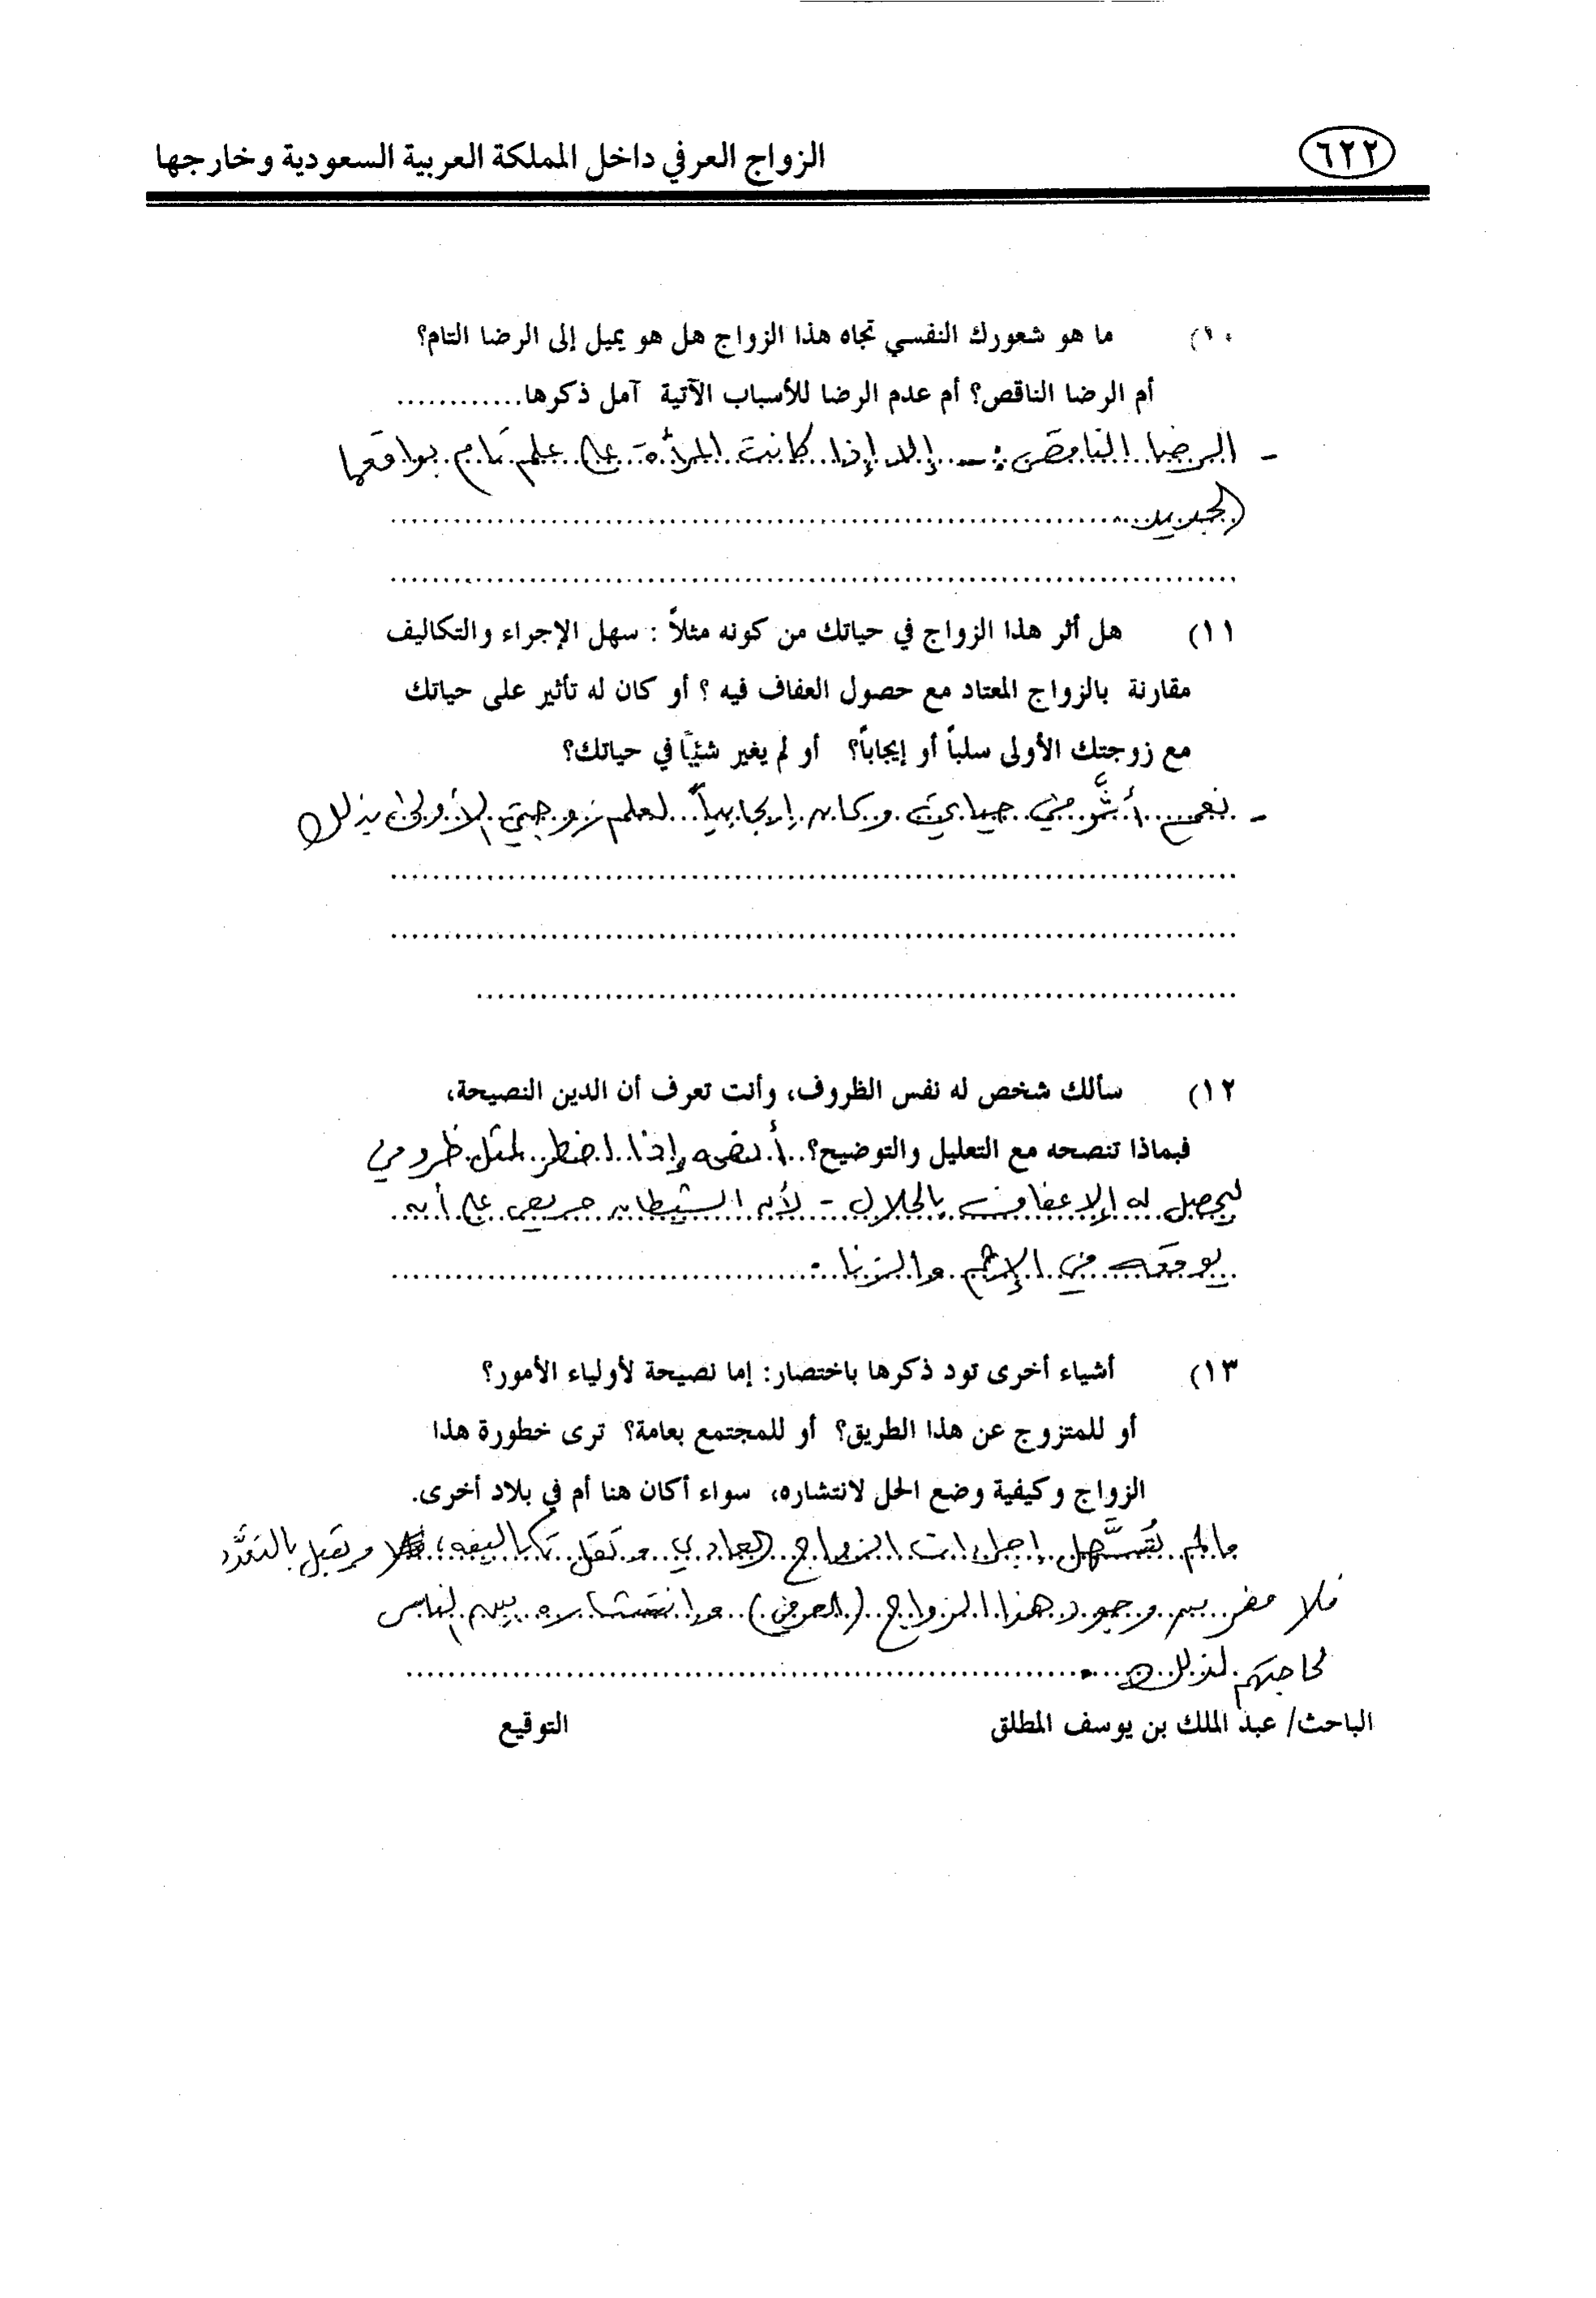 ٦٢٢
الزواج العرفي داخل المملكة العربية السعودية وخارجها
١٠) ما هو شعورك النفسي تجاه هذا الزواج هل هو يميل إلى الرضا التام؟
أم الرضا الناقص؟ أم عدم الرضا للأسباب الآتية آمل ذكرها............
- الرضا الناقص :- إلا إذا كانت المرأة على علم تام بواقعها
الجديد
١١) هل أثر هذا الزواج في حياتك من كونه مثلاً : سهل الإجراء والتكاليف
مقارنة بالزواج المعتاد مع حصول العفاف فيه ؟ أو كان له تأثير على حياتك
مع زوجتك الأولى سلباً أو إيجاباً؟ أو لم يغير شيئاً في حياتك؟
- نعم أثَّر في حياتي وكان إيجابياً لعلم زوجتي الأولى بذلك
١٢) سألك شخص له نفس الظروف، وأنت تعرف أن الدين النصيحة،
فبماذا تنصحه مع التعليل والتوضيح؟..أنصحه إذا اضطر لمثل ظروفي
ليحصل له الإعفاف بالحلال - لأن الشيطان حريص على أن
يوقعه في الإثم والزنا.
١٣) أشياء أخرى تود ذكرها باختصار: إما نصيحة لأولياء الأمور؟
أو للمتزوج عن هذا الطريق؟ أو للمجتمع بعامة؟ ترى خطورة هذا
الزواج وكيفية وضع الحل لانتشاره، سواء أكان هنا أم في بلاد أخرى.
مالم تُسَهَّل إجراءات الزواج العادي وتقل تكاليفه؛ ويقبل بالتعدُّد
فلا مفر من وجود هذا الزواج (العرفي) وانتشاره بين الناس
لحاجتهم لذلك.
الباحث/ عبد الملك بن يوسف المطلق التوقيع